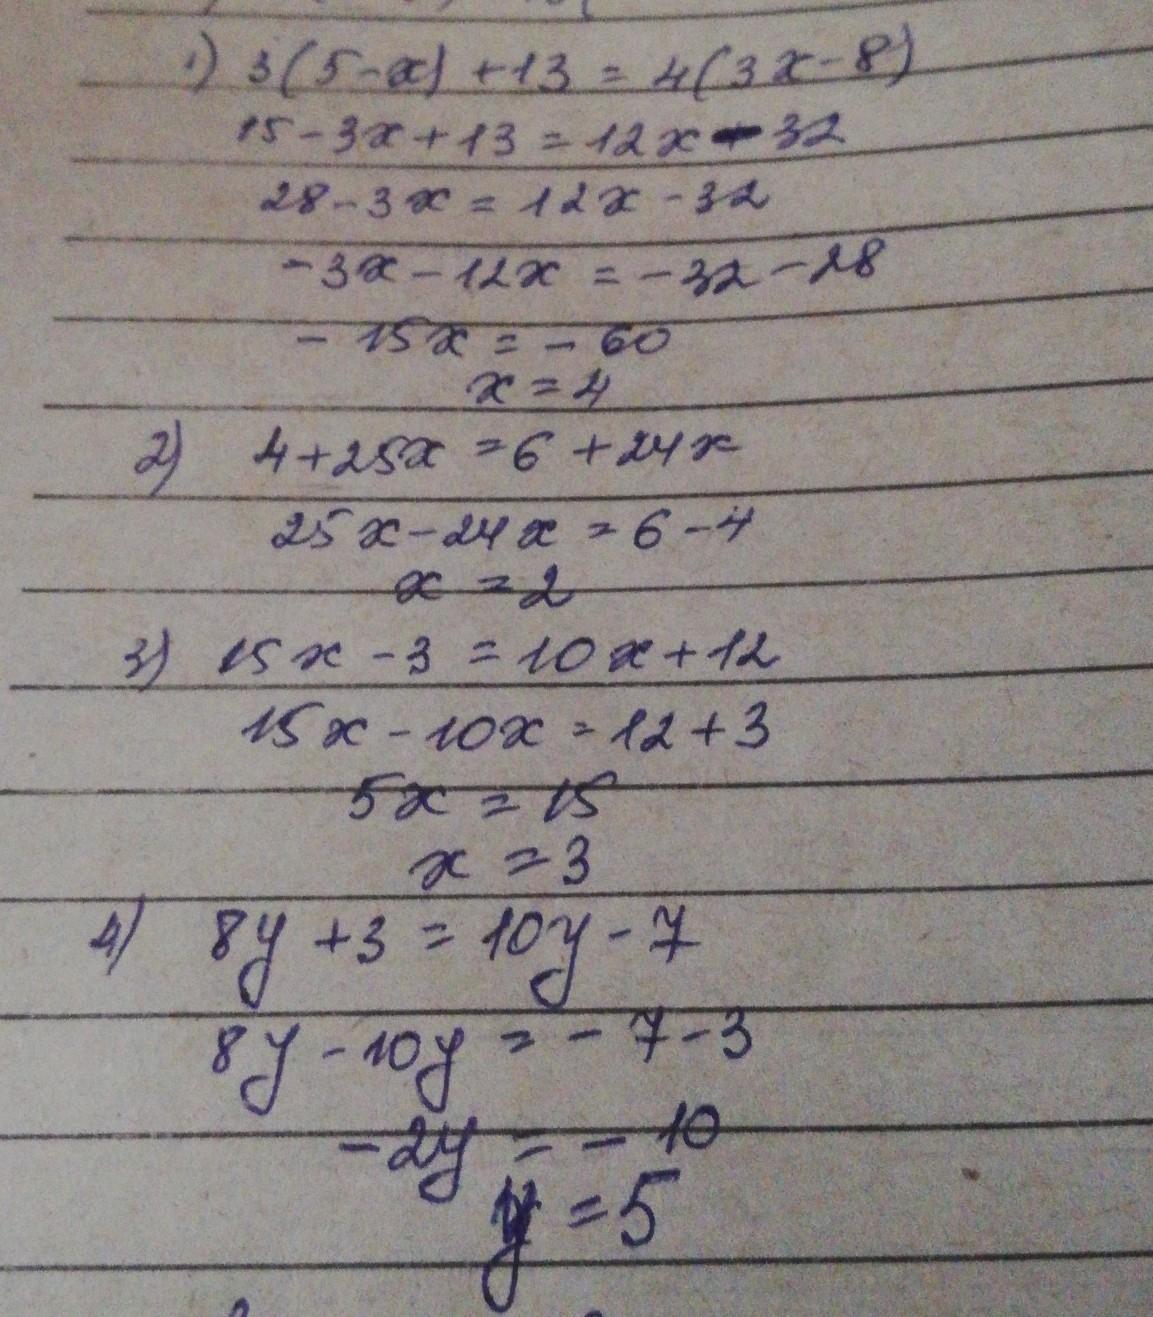 1) 3(5-x) +13 = 4(3x-8)
15-3x+13=12x-32
28-3x=12x-32
-3x-12x=-32-28
-15x=-60
x=4
2) 4+25x=6+24x
25x-24x=6-4
x=2
3) 15x-3=10x+12
15x-10x=12+3
5x=15
x=3
4) 8y+3=10y-7
8y-10y=-7-3
-2y=-10
y=5